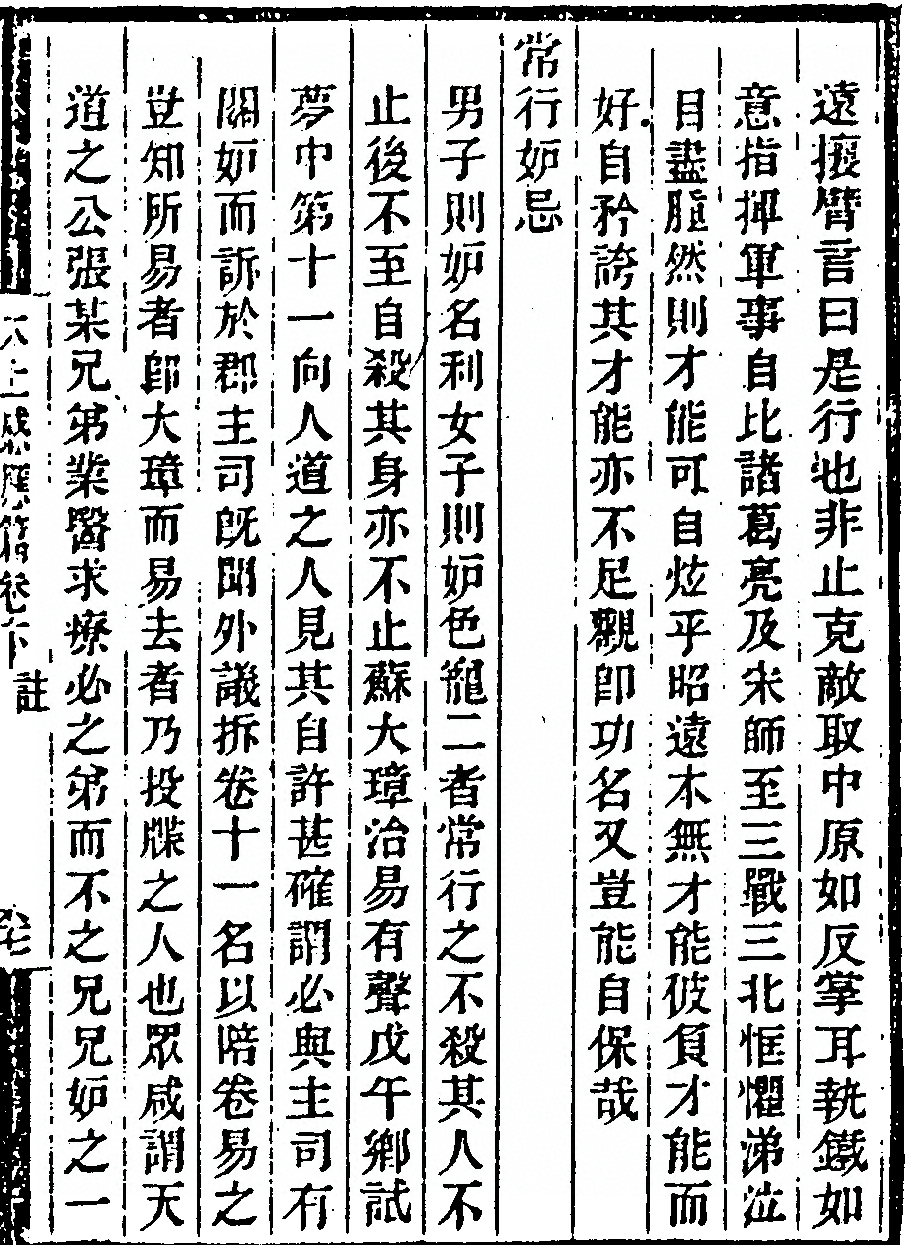 遠攘臂言曰是行也非止克敵取中原如反掌耳執鐵如
意指揮軍事自比諸葛亮及宋師至三戰三北恇懼涕泣
目盡腫然則才能可自炫乎昭遠本無才能彼負才能而
好自矜誇其才能亦不足觀即功名又豈能自保哉
常行妒忌
男子則妒名利女子則妒色寵二者常行之不殺其人不
止後不至自殺其身亦不止蘇大璋治易有聲戊午鄉試
夢中第十一向人道之人見其自許甚確謂必與主司有
關妒而訴於郡主司既聞外議拆卷十一名以陪卷易之
豈知所易者即大璋而易去者乃投牒之人也眾咸謂天
道之公張某兄弟業醫求療必之弟而不之兄兄妒之一
太上感應篇卷下
註